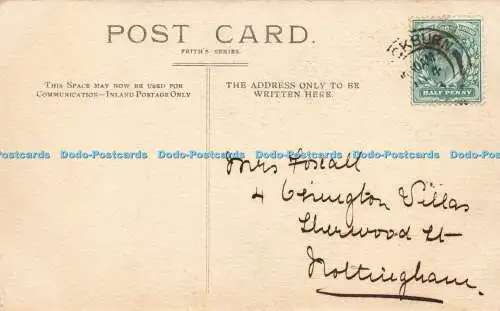 POST CARD.
FRITH'S SERIES.
THIS SPACE MAY NOW BE USED FOR
COMMUNICATION—INLAND POSTAGE ONLY
THE ADDRESS ONLY TO BE
WRITTEN HERE.
CKBURN
4
HALF PENNY
Dodo-Postcards Dodo-Postcards Dodo-Postcards Dodo-Postcards Dodo-Postcards
Mrs
4 Villas
Sherwood St
Nottingham.